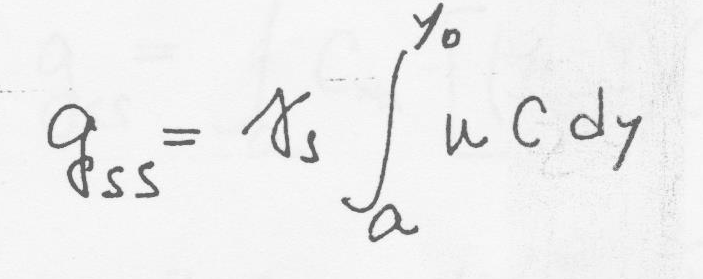 g_ss = γ_s ∫_a^y₀ u C dy